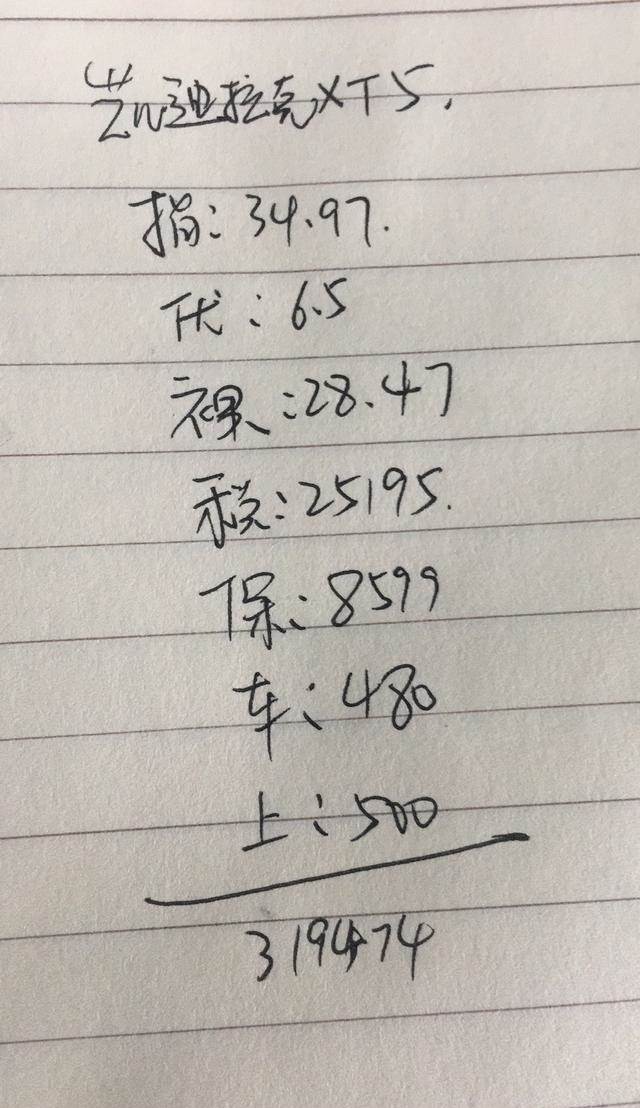 凯迪拉克XT5.
指:34.97.
优:6.5
裸:28.47
税:25195.
保:8599
车:480
上:500
319474